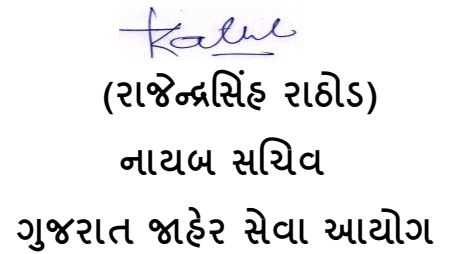 (રાજેન્દ્રસિંહ રાઠોડ)
નાયબ સચિવ
ગુજરાત જાહેર સેવા આયોગ